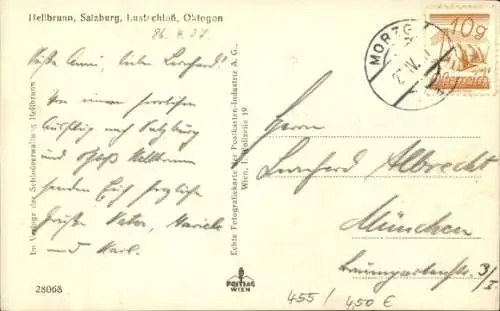 Hellbrunn, Salzburg, Lustschloß, Oktogon
26.4.27
Liebe Anni, lieber Leonhard!
Von einem herrlichen
Ausflug nach Salzburg
und Schloß Hellbrunn
senden Euch herzliche
Grüße Vater, Mariele
und Karl.
Im Verlage der Schloßverwaltung Hellbrunn
Echte Fotografiekarte der Postkarten-Industrie A. G.,
Wien, I. Wollzeile 19
28068
POSTIAG
WIEN
MORZG
IV.
10g
Österreich
Herrn
Leonhard Albrecht
München
Baumgartenstr. 3/I
455/ 4,50 €